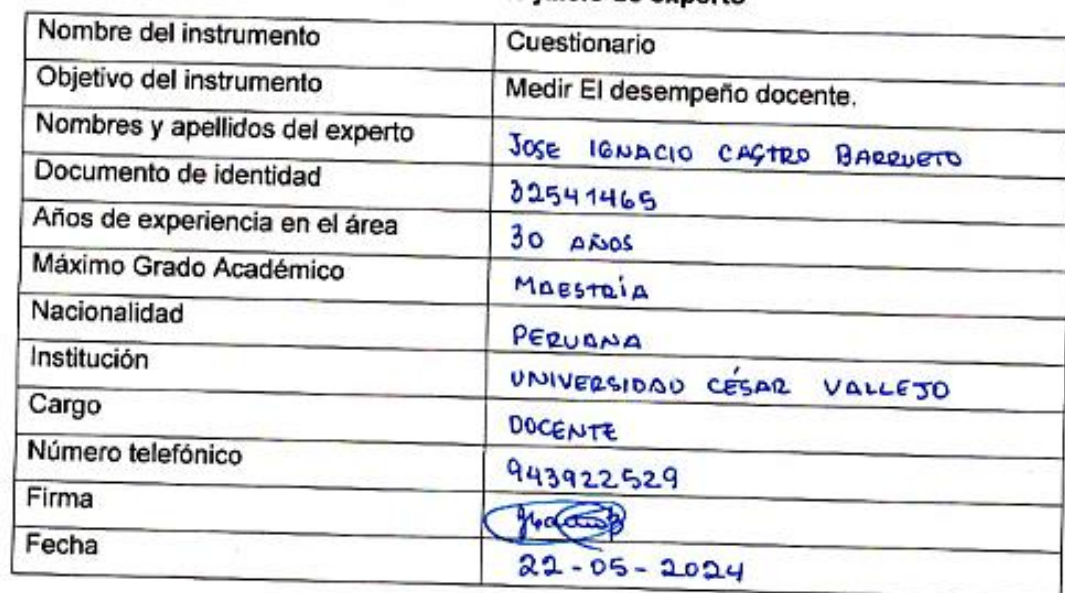 juicio de experto
Nombre del instrumento Cuestionario
Objetivo del instrumento Medir El desempeño docente.
Nombres y apellidos del experto JOSE IGNACIO CASTRO BARRUETO
Documento de identidad 02541465
Años de experiencia en el área 30 AÑOS
Máximo Grado Académico MAESTRÍA
Nacionalidad PERUANA
Institución UNIVERSIDAD CÉSAR VALLEJO
Cargo DOCENTE
Número telefónico 943922529
Firma
Fecha 22-05-2024